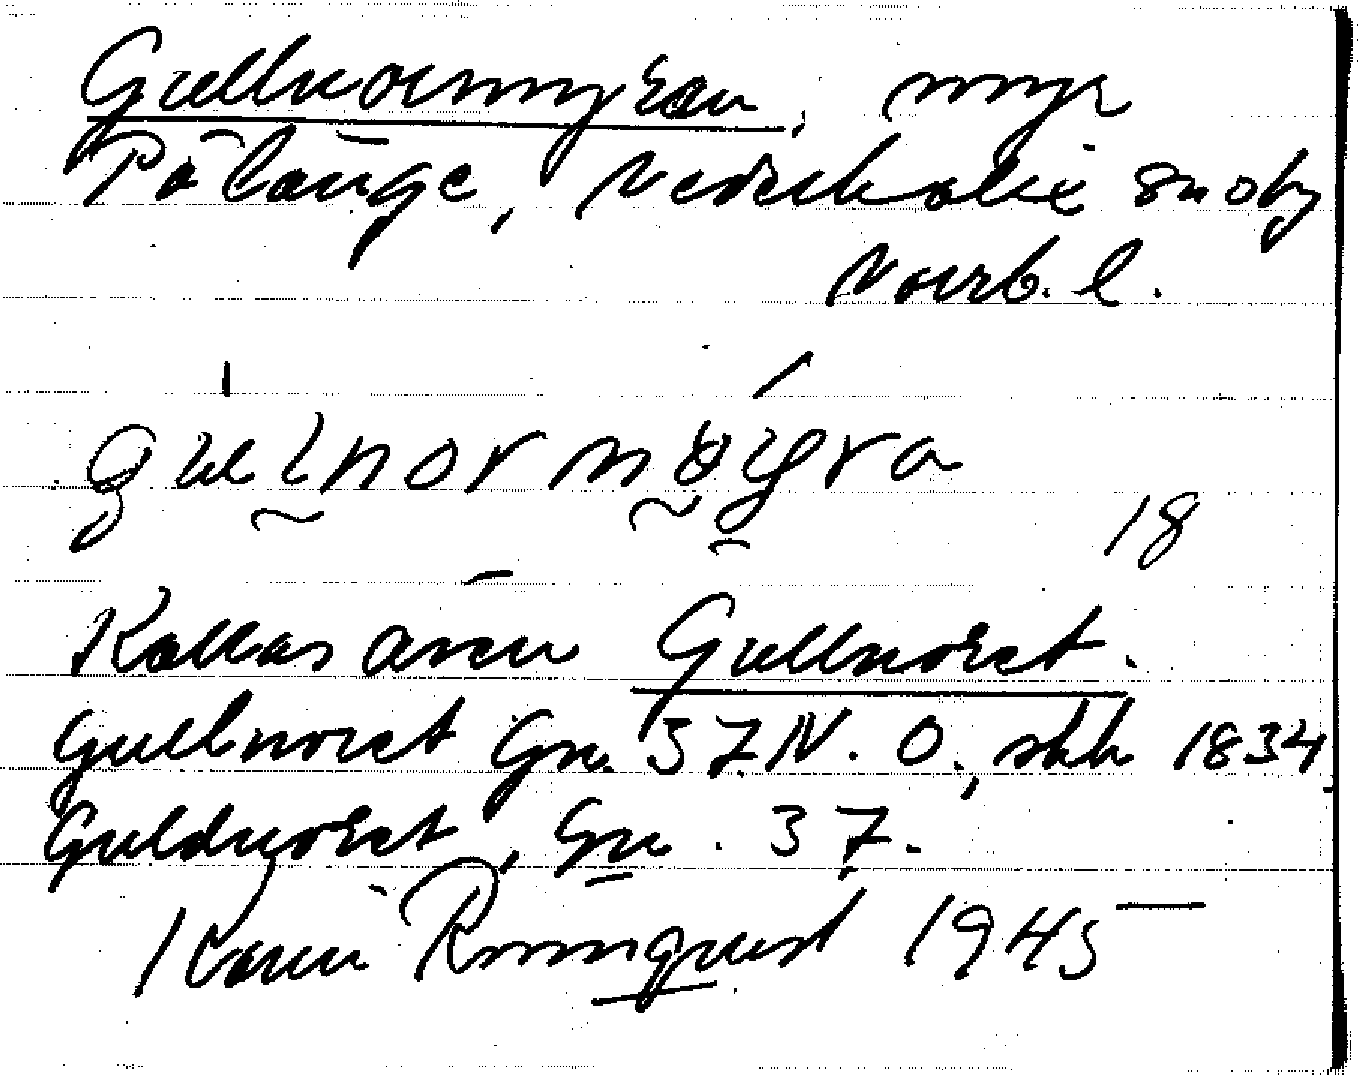 Gullnormyran, myr
På länge, Nederkalix snby
Norrb. l.
gulnormyra
18
Kallas även Gullnoret.
Gullnoret Gn. 37. N. O., skh 1834,
Guldnoret, Gn. 37.
Karin Runnquist 1945